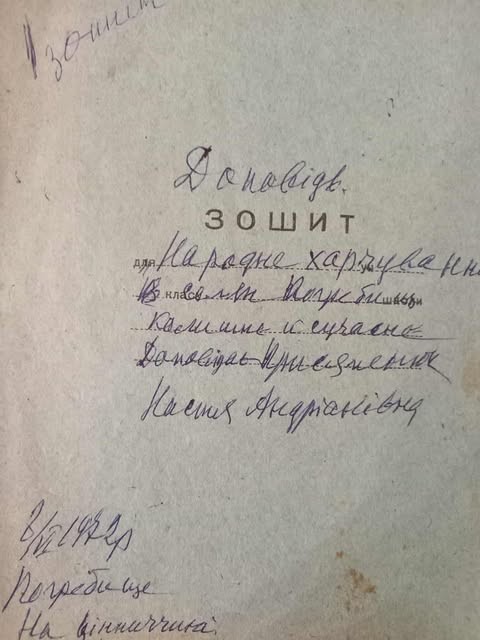 1 зошит
Доповідь.
ЗОШИТ
для Народне харчування
В класу селі Погребищ
Колишнє и сучасне
Доповідає Присяженюк
Настя Андріанівна
2/VI 1972р
Погребище
На Вінниччині.